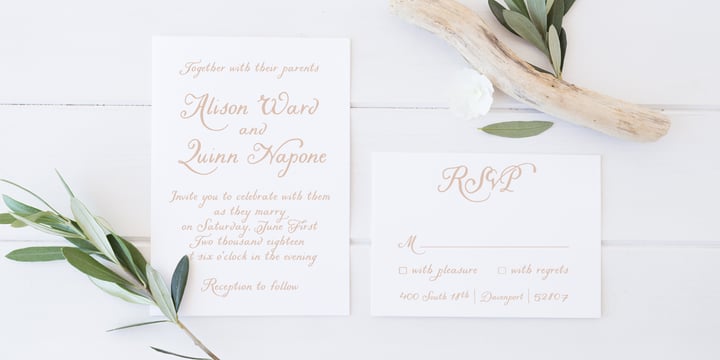 Together with their parents
Alison Ward
and
Quinn Napone
Invite you to celebrate with them
as they marry
on Saturday, June First
Two thousand eighteen
at six o'clock in the evening
Reception to follow
RSVP
M
with pleasure with regrets
400 South 18th | Davenport | 52807